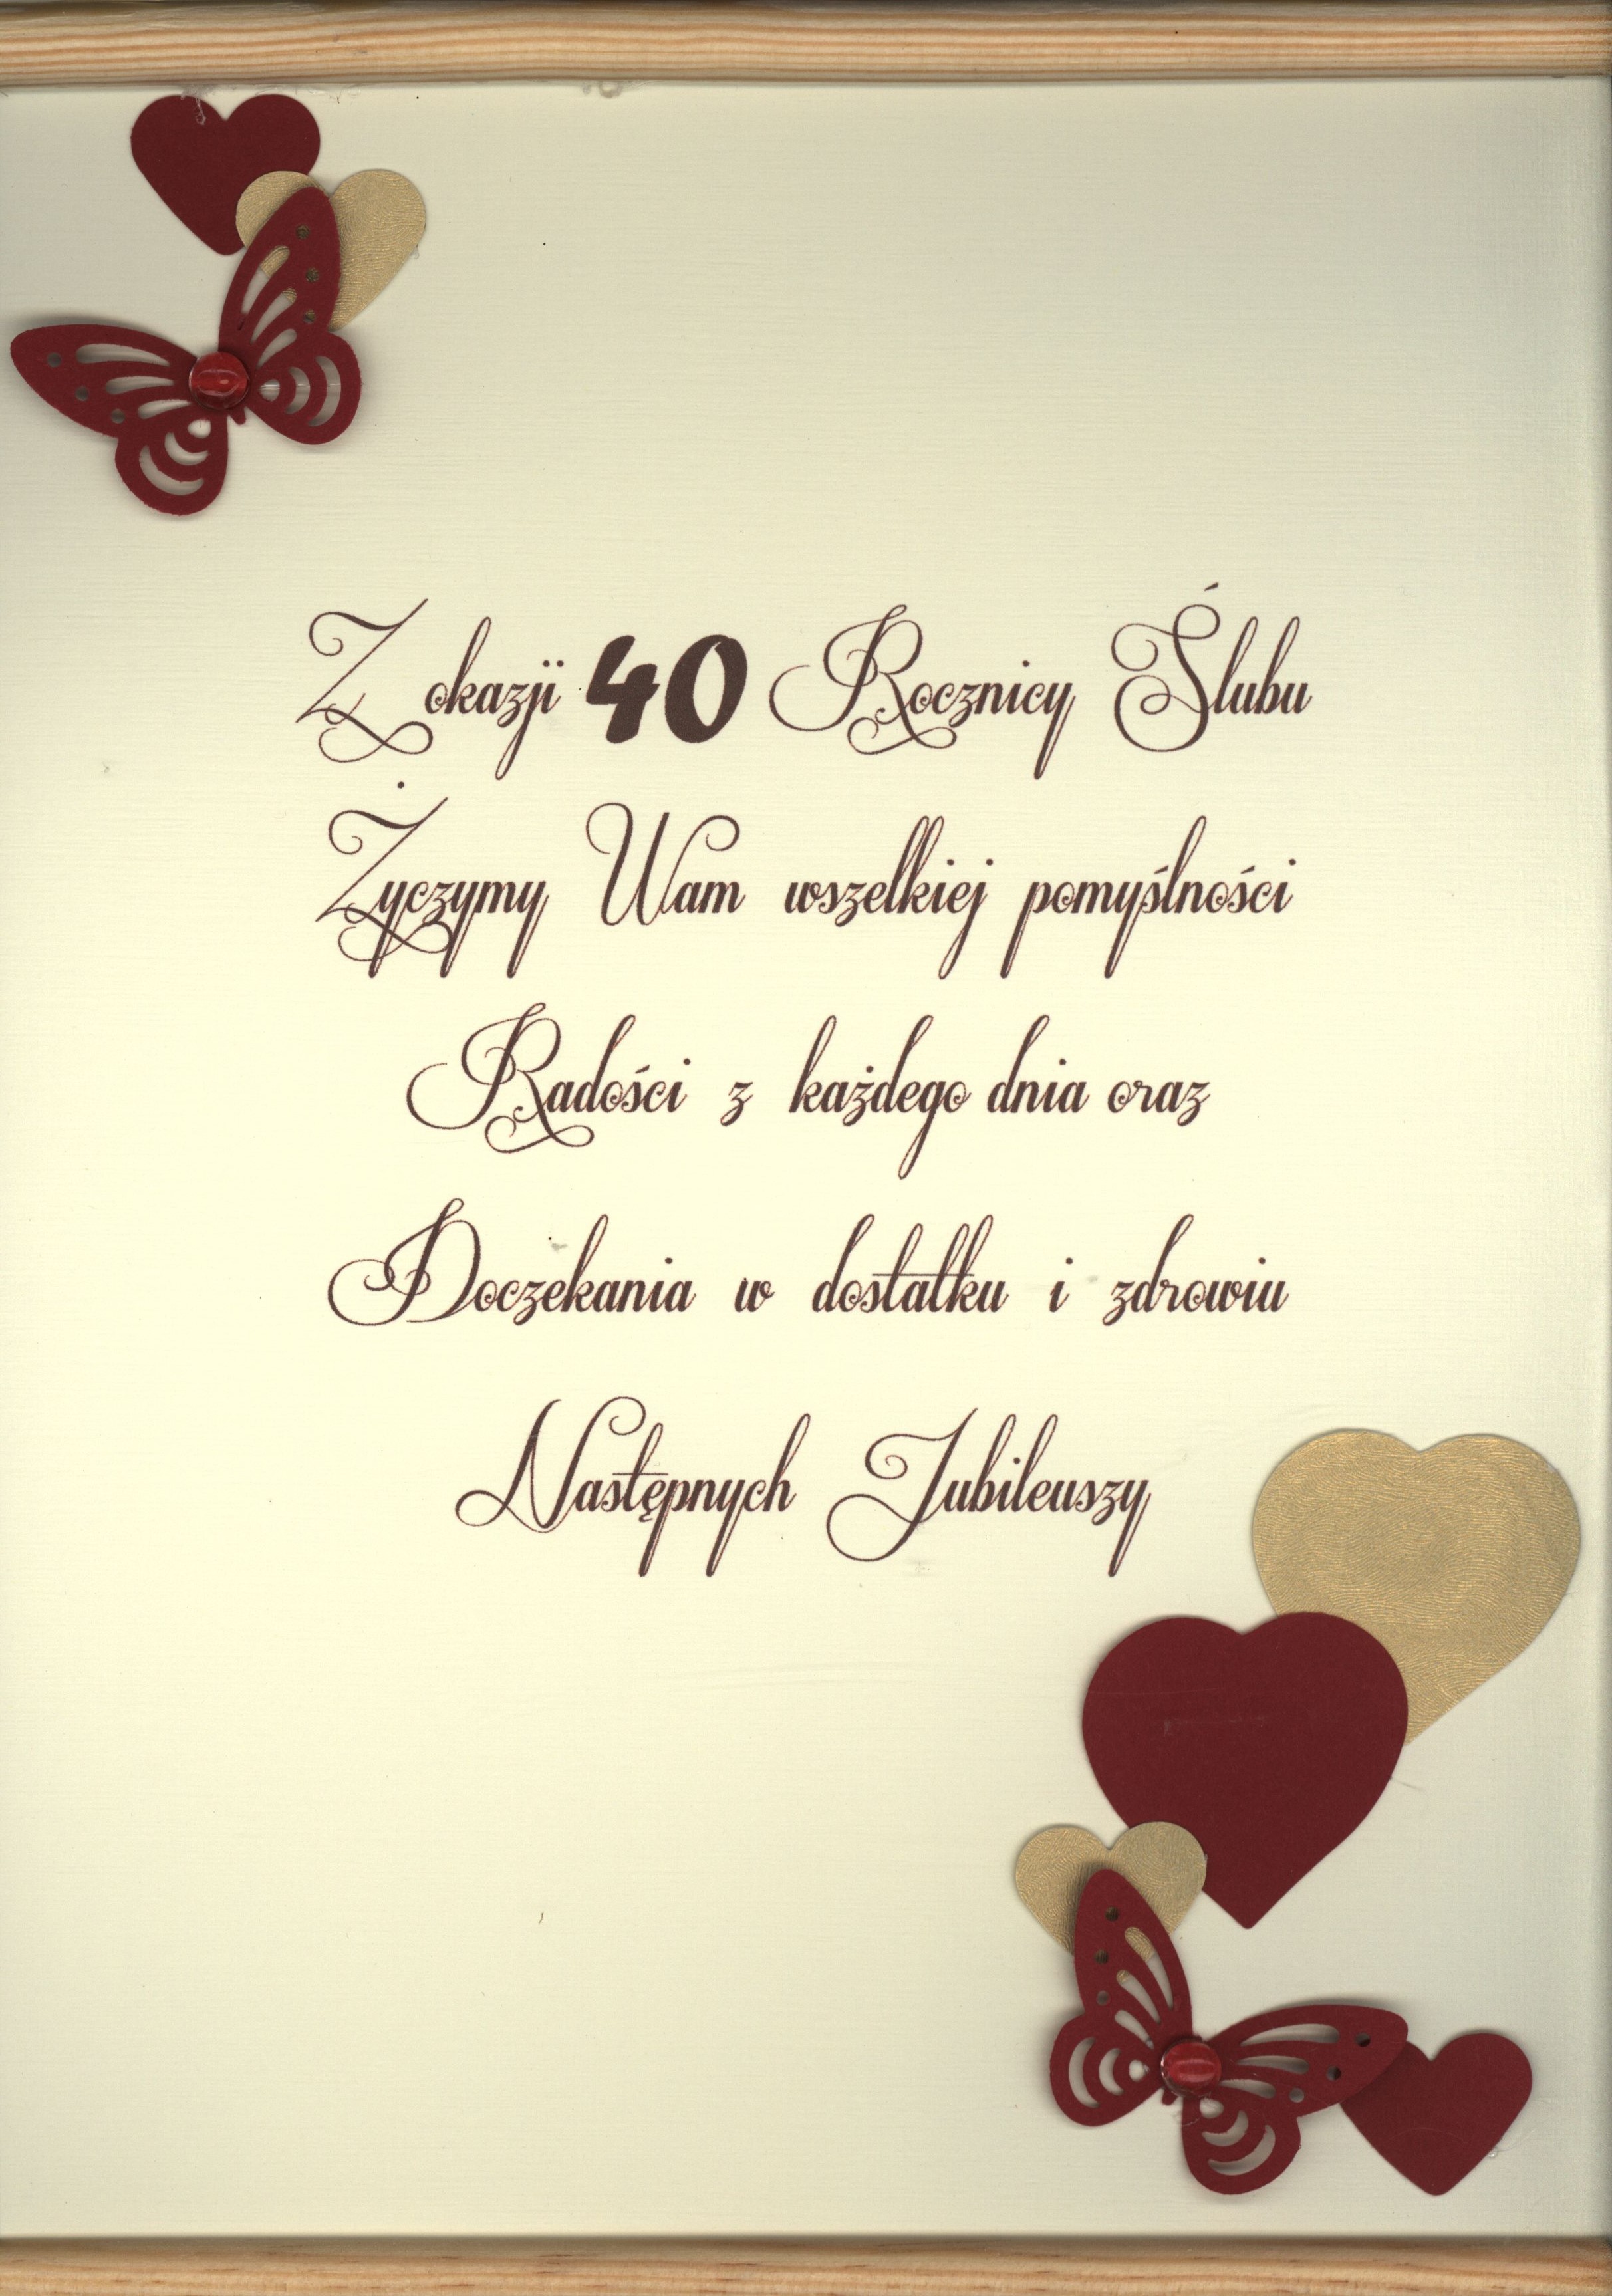 Z okazji 40 Rocznicy Ślubu
Życzymy Wam wszelkiej pomyślności
Radości z każdego dnia oraz
Doczekania w dostatku i zdrowiu
Następnych Jubileuszy